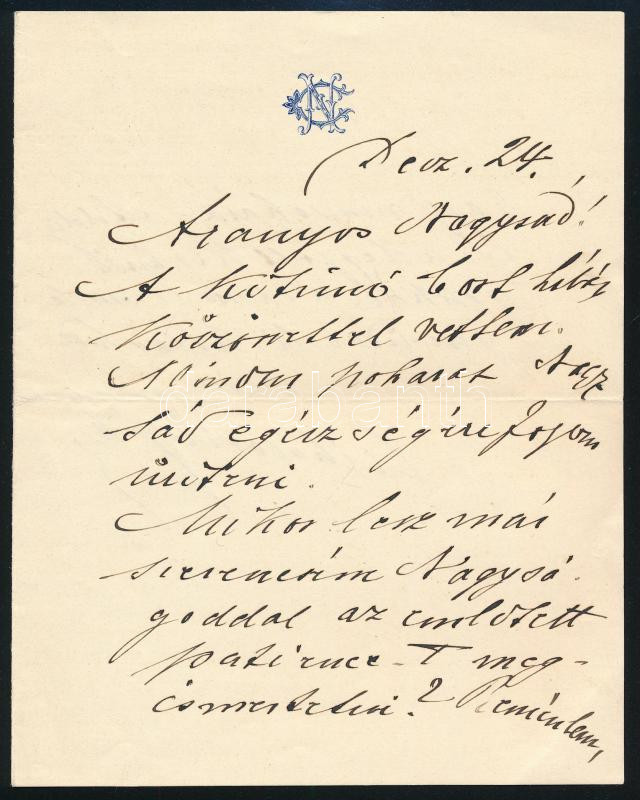 Decz. 24.
Aranyos Nagysád!
A kitünő bort hálás
köszönettel vettem.
Minden poharat Nagy
sád egészségére fogom
üríteni.
Mikor lesz már
szerencsém Nagysá-
goddal az említett
patience-T meg-
ismertetni? Reménlem,
darabanth